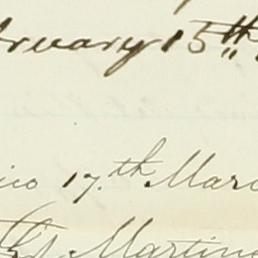 ruary 15th
ico 17th Marc
Martin